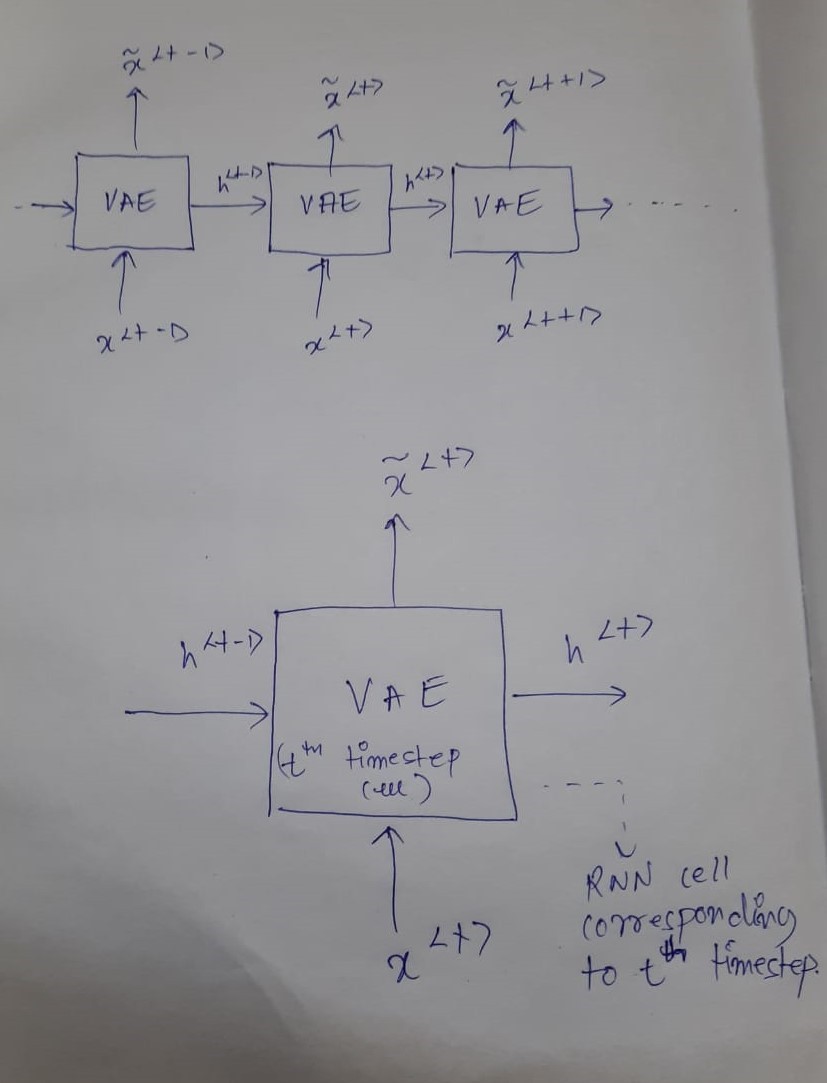 x̃<t-1>
x̃<t>
x̃<t+1>
VAE
h<t-1>
VAE
h<t>
VAE
x<t-1>
x<t>
x<t+1>
x̃<t>
h<t-1>
h<t>
VAE
(tth timestep
cell)
x<t>
RNN cell
corresponding
to tth timestep.